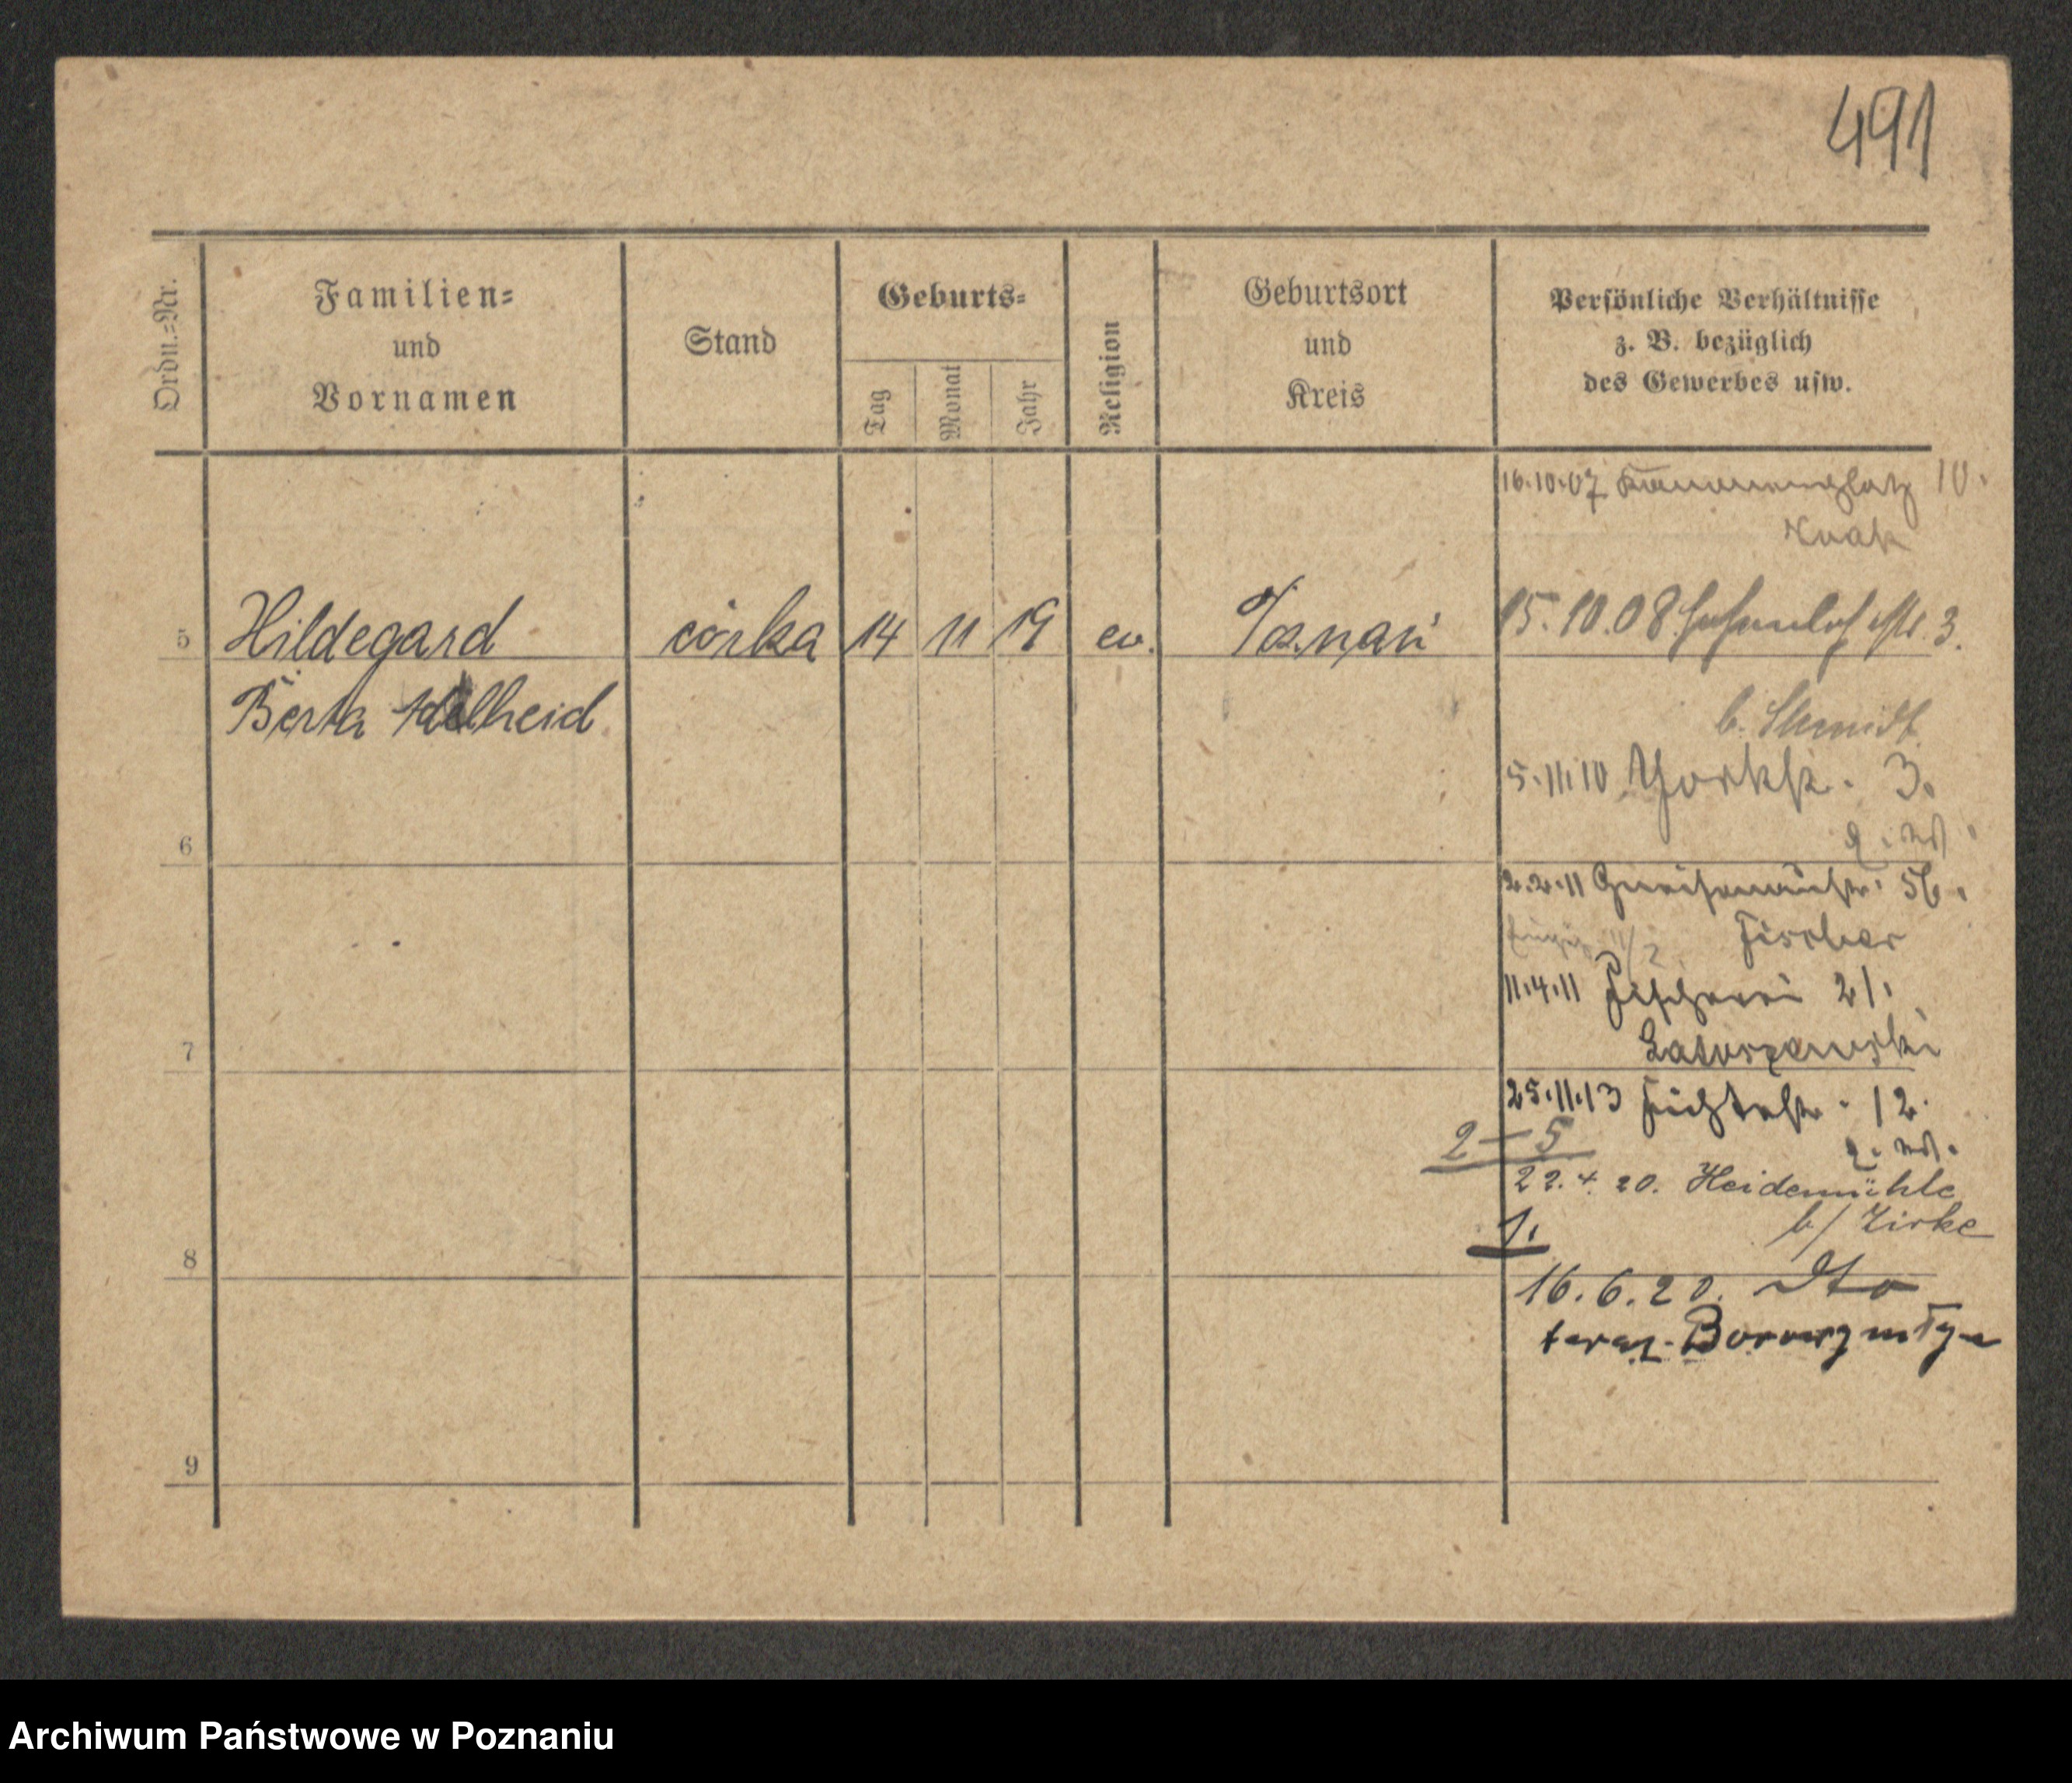 491
Ordn.-Nr.
Familien-
und
Vornamen
Stand
Geburts-
Tag
Monat
Jahr
Religion
Geburtsort
und
Kreis
Persönliche Verhältnisse
z. B. bezüglich
des Gewerbes usw.
16.10.07 10.
5 Hildegard córka 14 11 19 ev. Poznań 15.10.08 3.
Berta Adelheid
b. Schmidt
5.11.10 Yorkstr. 3.
6
2.2.11 Gneisenaustr. 56.
Fischer
11.4.11 Fischerei 21.
7
25.11.13 Fichtestr. 12.
2–5
22.4.20. Heidemühle
b/ Zirke
1.
8
16.6.20. dto
teraz
9
Archiwum Państwowe w Poznaniu